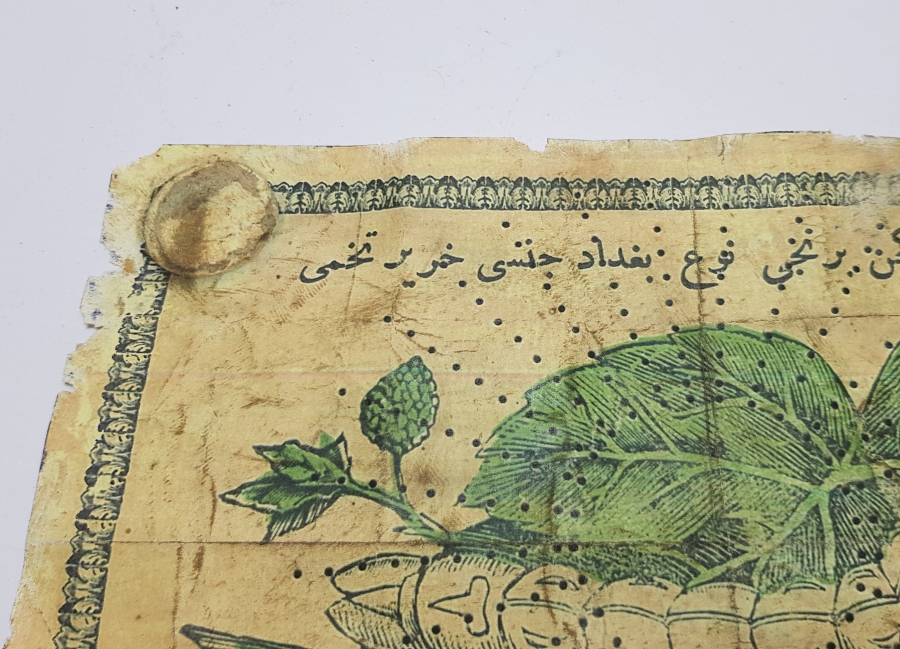 برنجی نوع بغداد جنسی حریر تخمی